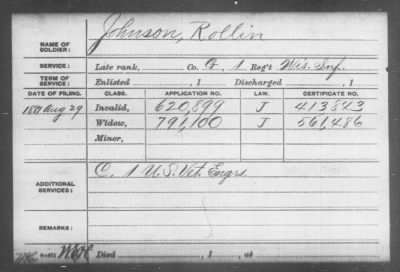 NAME OF SOLDIER: Johnson, Rollin
SERVICE: Late rank, Co. G, 1 Reg't Wis. Inf.
TERM OF SERVICE: Enlisted , 1 Discharged , 1
DATE OF FILING. CLASS. APPLICATION NO. LAW. CERTIFICATE NO.
1887 Aug 29 Invalid, 620,899 J 413843
Widow, 791,100 J 561,486
Minor,
ADDITIONAL SERVICES: C. 1 U.S. Vet. Engrs.
REMARKS:
Died , 1 , at